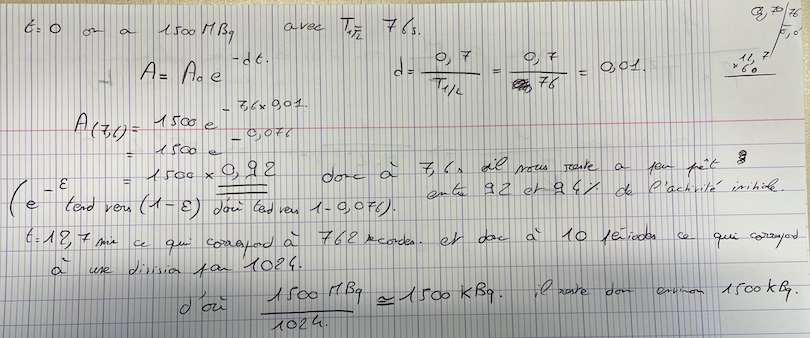 t=0 on a 1500 MBq avec T1/2 = 76s.
A = A₀ e^-λt. λ = 0,7 / T1/2 = 0,7 / 76 = 0,01.
0,70 / 76
11,7
×60
A(7,6) = 1500 e^-7,6×0,01
= 1500 e^-0,076
= 1500 × 0,92 donc à 7,6s il nous reste a peu prêt
entre 92 et 94% de l'activité initiale.
(e^-ε tend vers (1-ε) d'où tend vers 1-0,076).
t=12,7 min ce qui correspod à 762 secondes. et donc à 10 périodes ce qui correspod
à une division par 1024.
d'où 1500 MBq / 1024. ≅ 1500 kBq. il reste donc environ 1500 kBq.